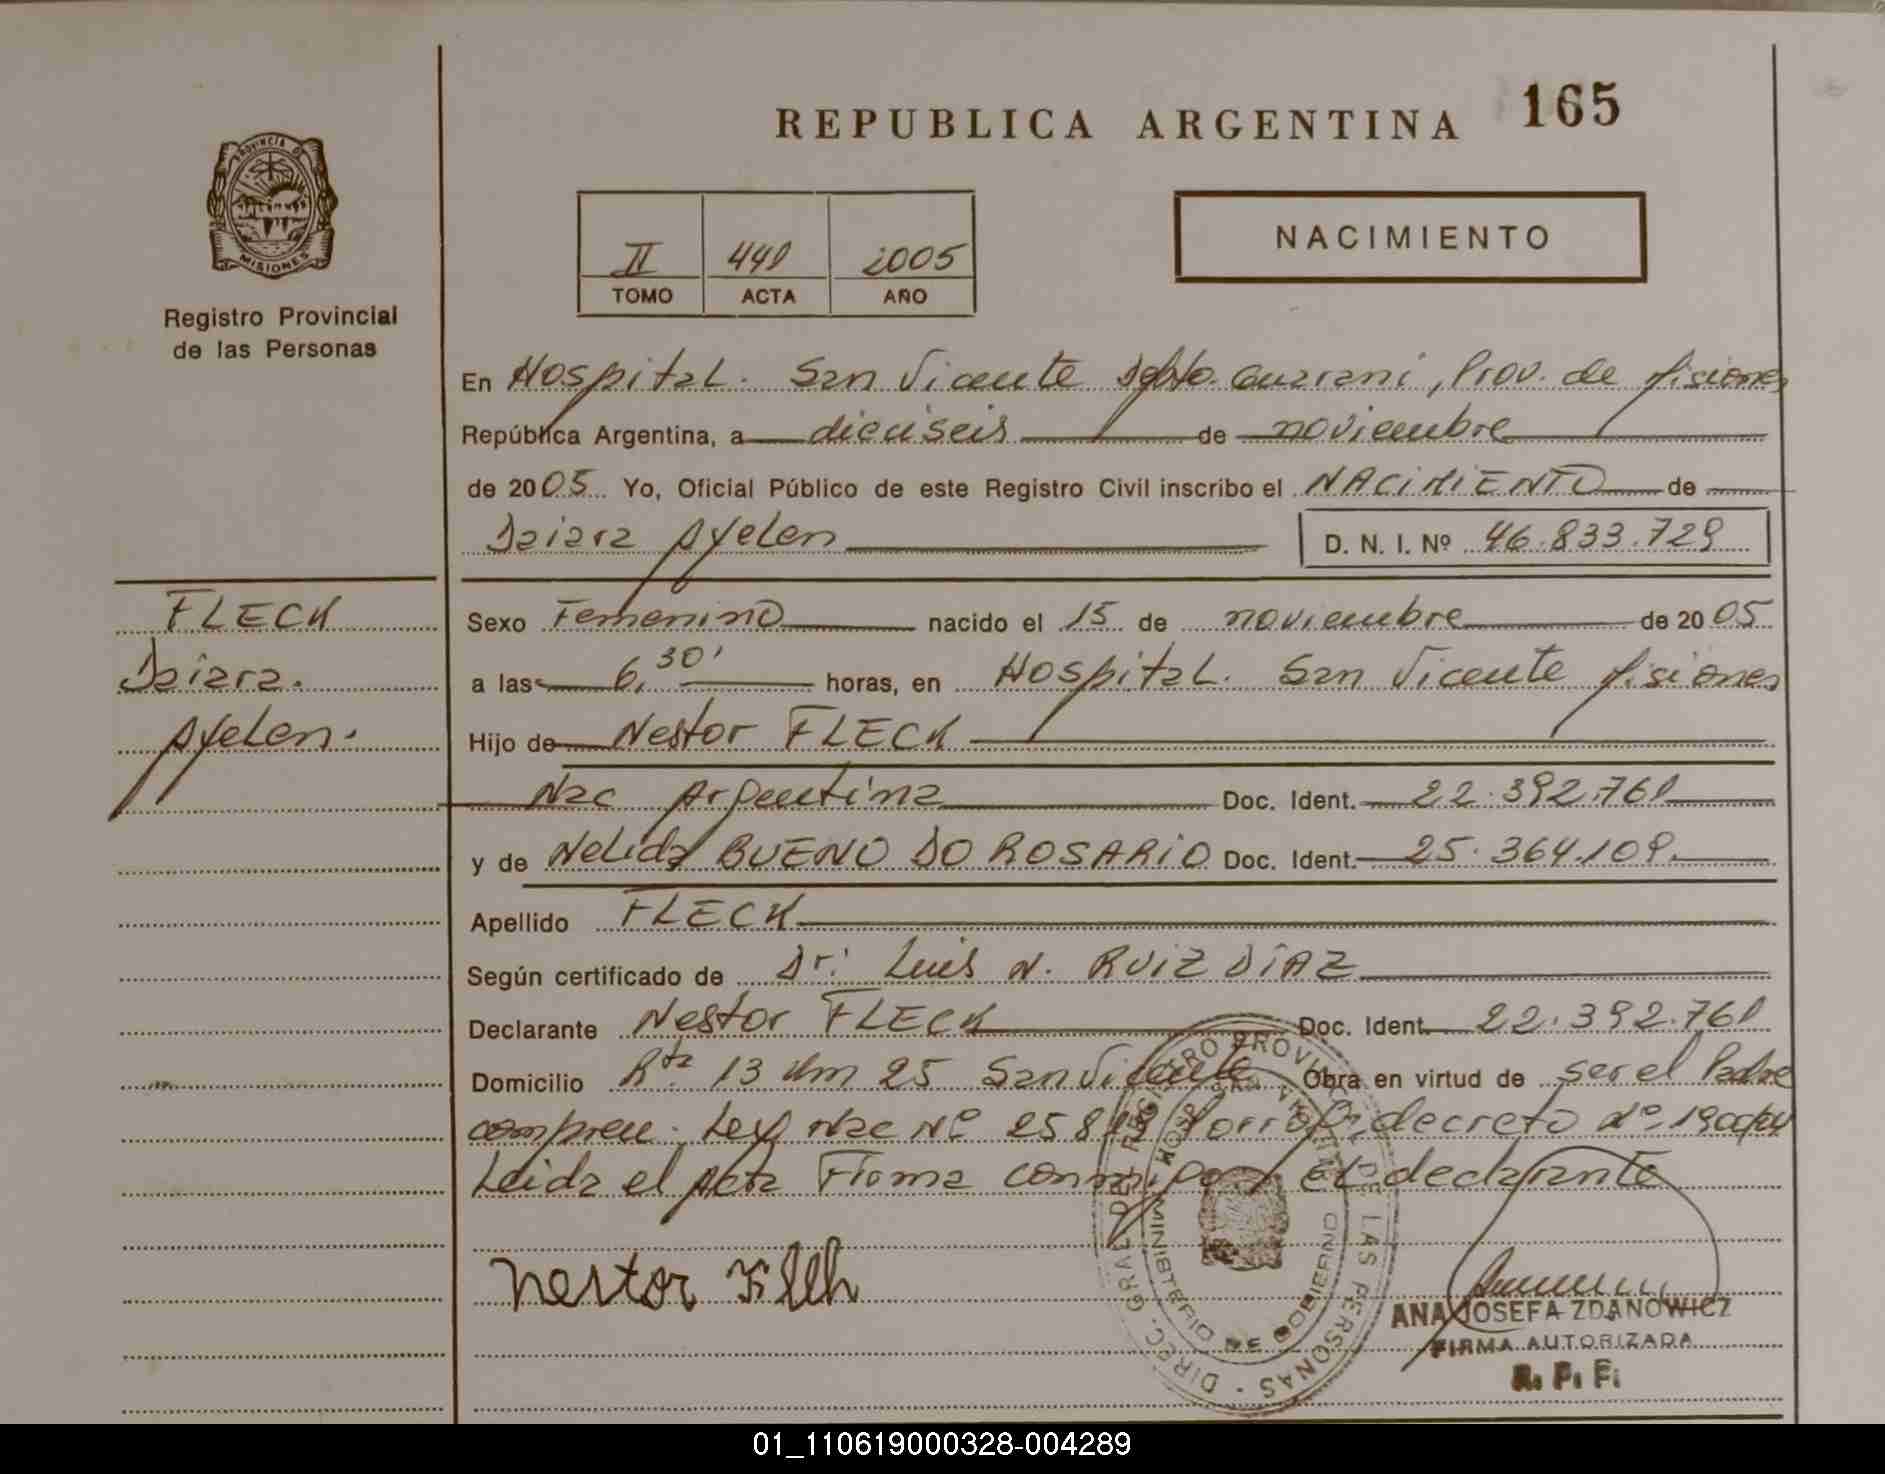 REPUBLICA ARGENTINA 165
PROVINCIA DE
MISIONES
Registro Provincial
de las Personas
II 441 2005
TOMO ACTA AÑO
NACIMIENTO
En Hospital. San Vicente Dpto. Guarani, Prov. de Misiones
República Argentina, a dieciseis de noviembre
de 2005 Yo, Oficial Público de este Registro Civil inscribo el NACIMIENTO de
Daiara Ayelen D. N. I. Nº 46.833.729
FLECK
Daiara.
Ayelen.
Sexo Femenino nacido el 15 de noviembre de 2005
a las 6,30' horas, en Hospital. San Vicente Misiones
Hijo de Nestor FLECK
Nac Argentina Doc. Ident. 22.392.761
y de Nelida BUENO DO ROSARIO Doc. Ident. 25.364.109.
Apellido FLECK
Según certificado de Dr. Luis N. RUIZ DIAZ
Declarante Nestor FLECK Doc. Ident. 22.392.761
Domicilio Rta 13 Km 25 San Vicente Obra en virtud de ser el Padre
Ley Nac Nº decreto Nº
Leida el Acta Firma el declarante
Nestor Fleck
DIREC. GRAL. DEL REGISTRO PROVINCIAL DE LAS PERSONAS
MINISTERIO DE GOBIERNO
ANA JOSEFA ZDANOWICZ
FIRMA AUTORIZADA
R. P. P.
01_110619000328-004289